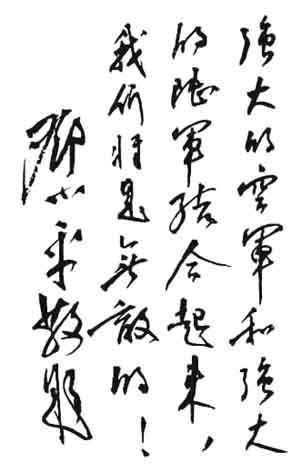 強大的空軍和強大
的陸軍结合起来，
我们将是無敵的！
鄧小平敬題